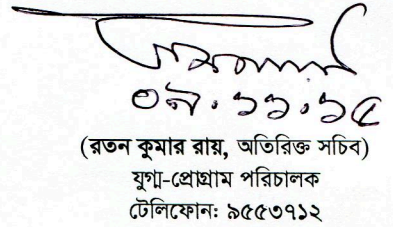 ০৯.১১.১৫
(রতন কুমার রায়, অতিরিক্ত সচিব)
যুগ্ম-প্রোগ্রাম পরিচালক
টেলিফোন: ৯৫৫৩৭১২